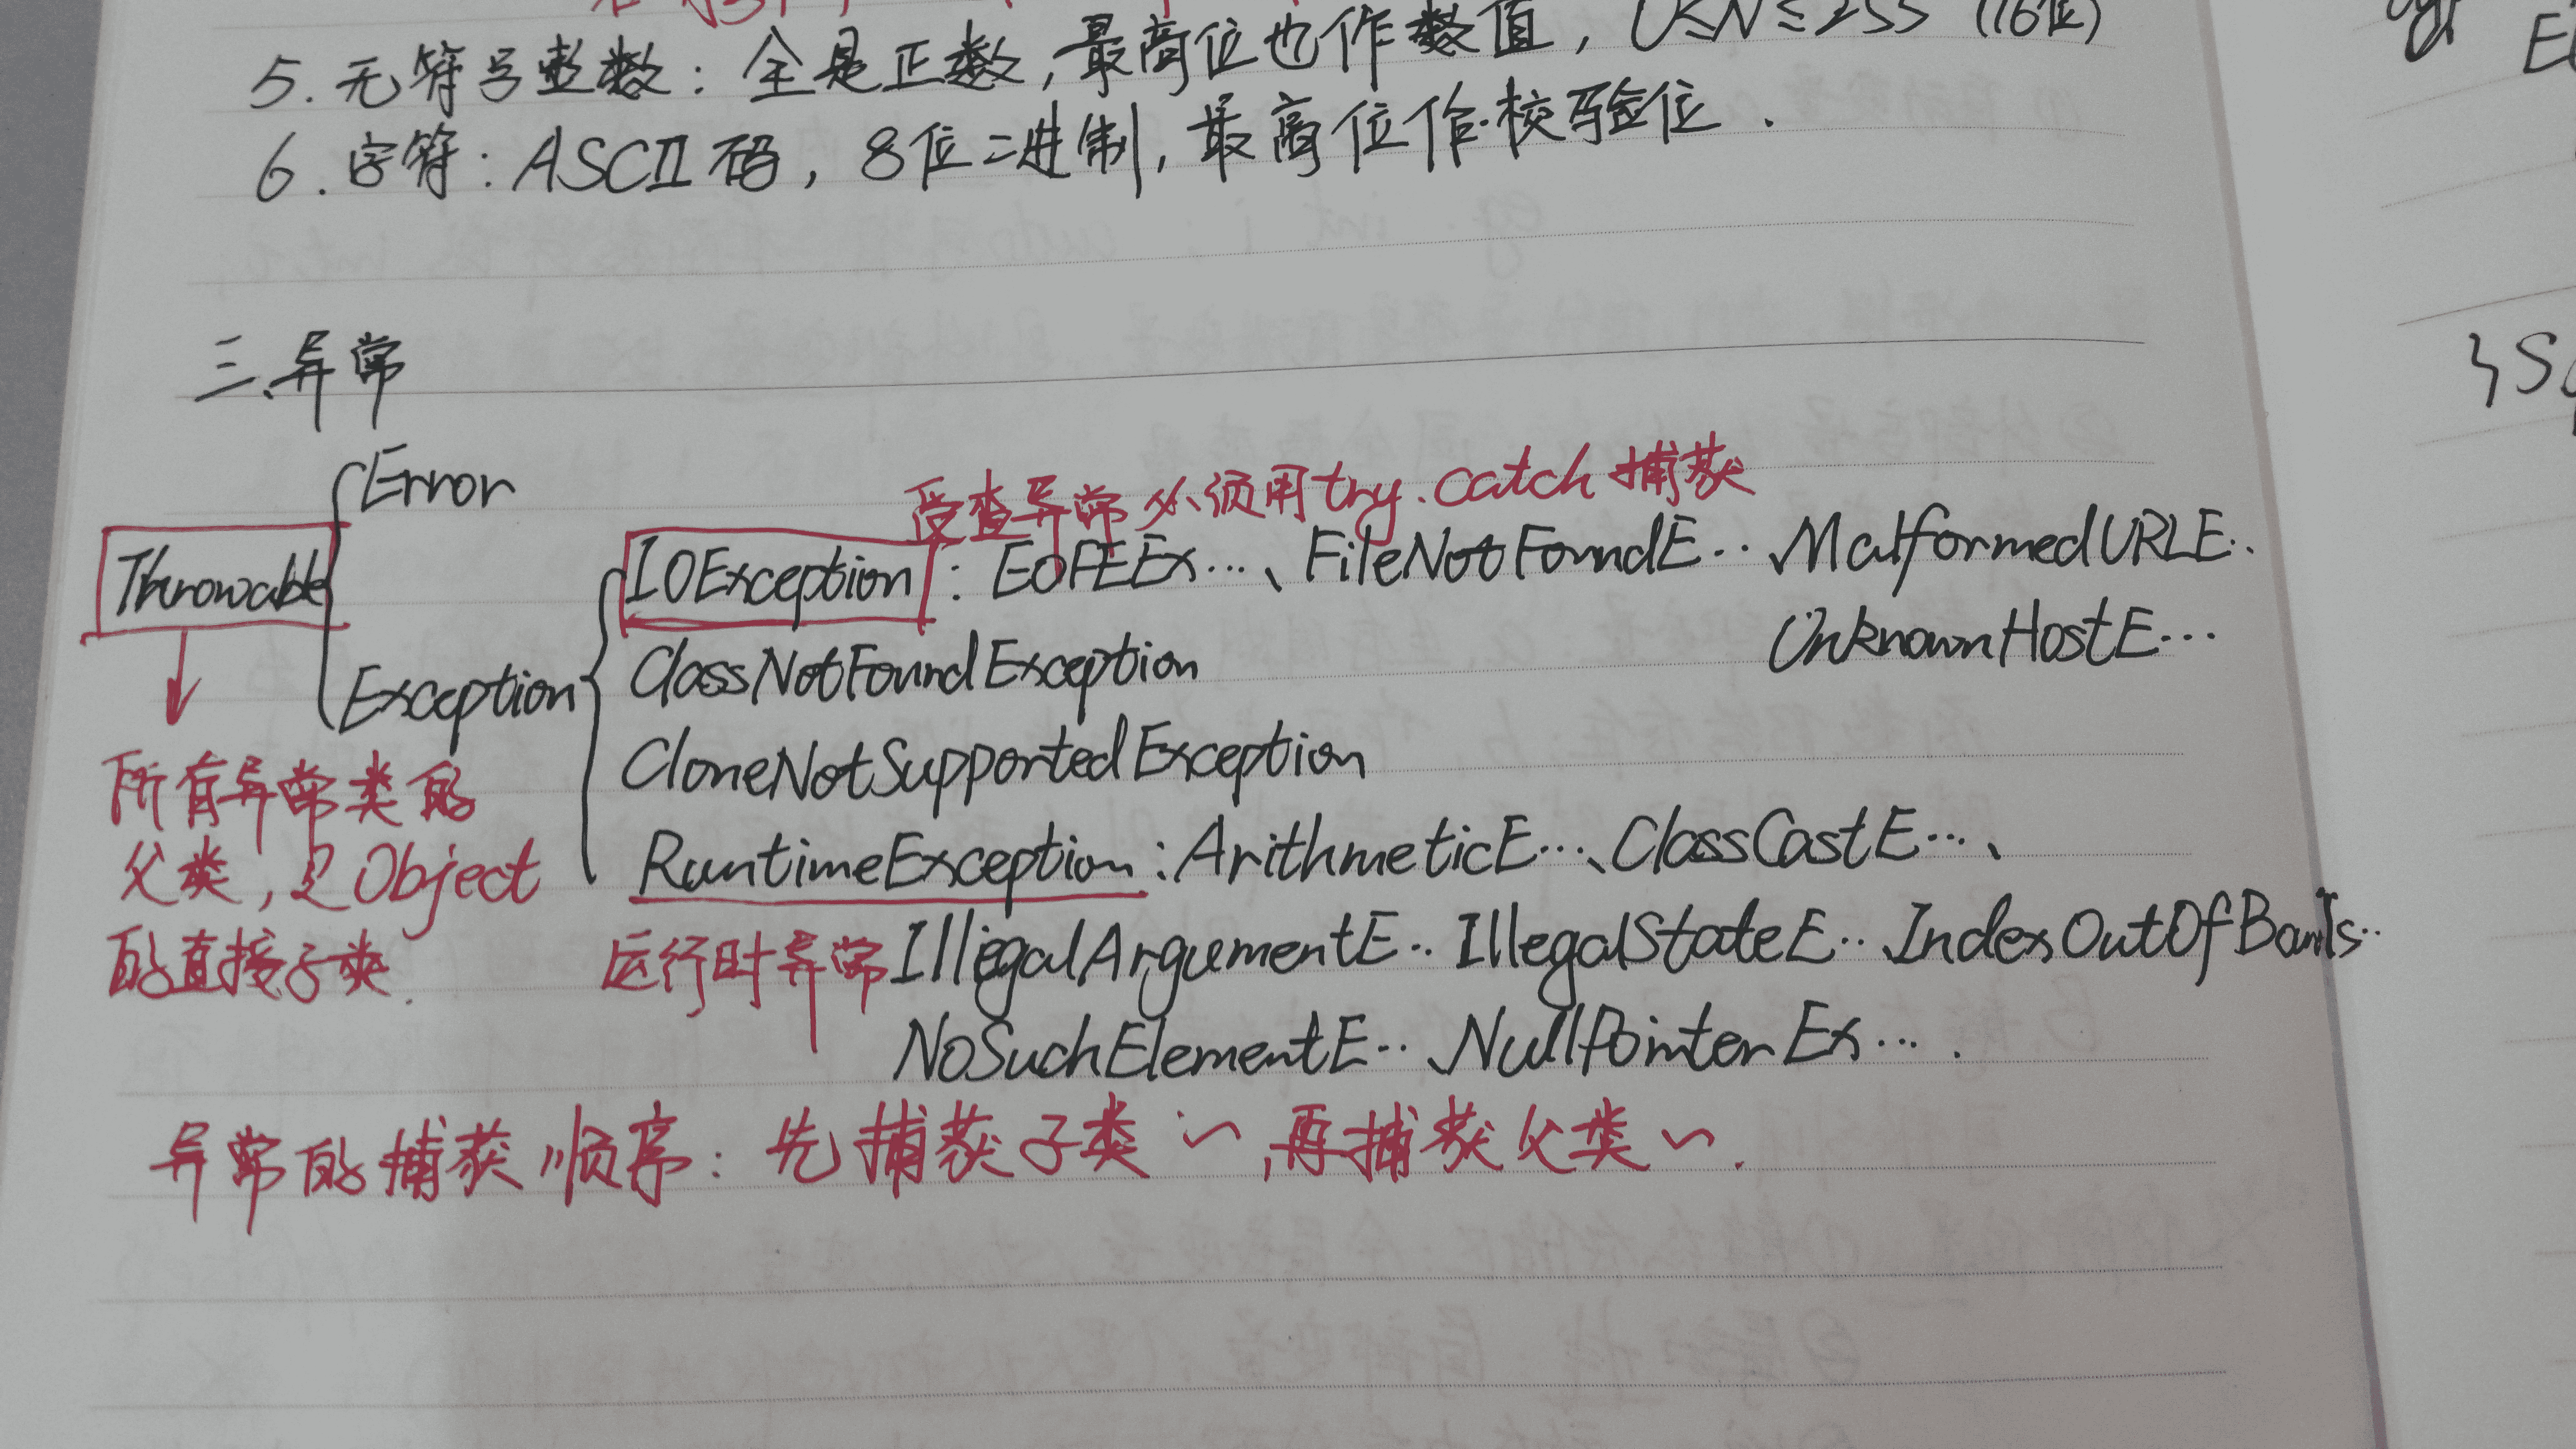 5.无符号整数：全是正数,最高位也作数值，0≤N≤255 (16位)
6.字符：ASCII码，8位二进制,最高位作校验位.
三.异常
Error
受查异常必须用try.catch捕获
Throwable
IOException：EOFEEx…、FileNotFoundE‥MalformedURLE‥
UnknownHostE…
ClassNotFoundException
Exception
CloneNotSupportedException
所有异常类的
父类,是Object
的直接子类.
RuntimeException:ArithmeticE…、ClassCastE…、
运行时异常
IllegalArgumentE‥IllegalStateE‥IndexOutOfBounds‥
NoSuchElementE‥NullPointerEx….
异常的捕获顺序：先捕获子类~,再捕获父类~.